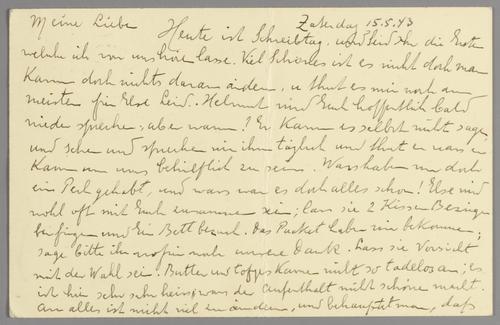 Meine Liebe Zaterdag 15.5.43
Heute ist Schreibtag, und seid Ihr die Erste
welche ich von uns hören lasse. Viel Schönes ist es nicht doch man
kann doch nichts daran ändern, u thut es mir noch am
meisten für Else Leid. Helmut wird Euch hoffentlich bald
wieder sprechen, aber wann? Er kann es selbst nicht sagen
und sehen und sprechen wir ihn täglich und thut er was er
kann um uns behilflich zu sein. Was haben wir doch
ein Pech gehabt, und was war es doch alles schon! Else wird
wohl oft mit Euch zusammen sein; lass sie 2 Kissen Bezüge
beifügen und Ein Bettbezug. Das Packet habe wir bekommen,
sage bitte ihr wofür noch unsere Dank. Lass sie Vorsicht
mit der Wahl sein. Butter und kame nicht so tadelos an; es
ist hier sehr sehr heiss, was der Aufenthalt nicht schöner macht.
An alles ist nicht viel zu ändern, und behauptet man, dass